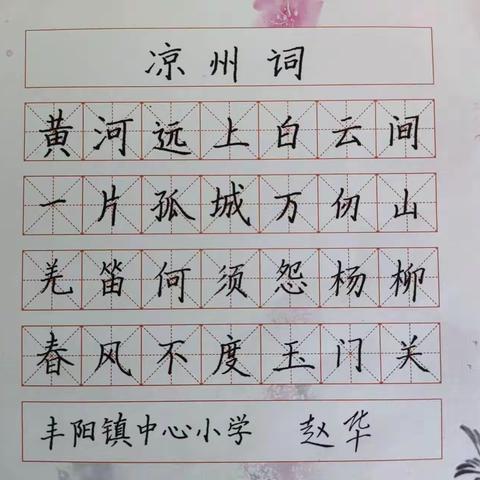 凉州词
黄河远上白云间
一片孤城万仞山
羌笛何须怨杨柳
春风不度玉门关
丰阳镇中心小学 赵华